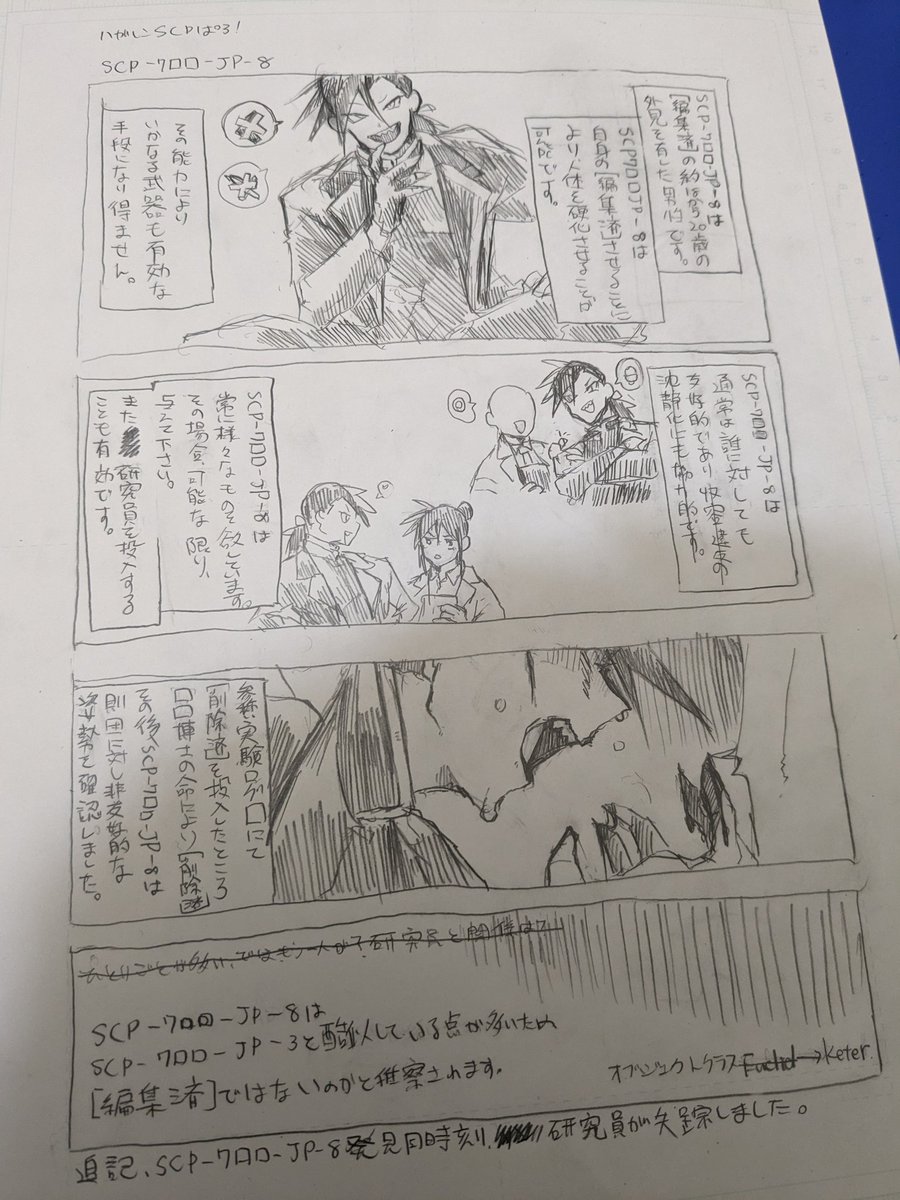 ハガレンSCPぱろ!
SCP-7口口-JP-8
SCP-7口口-JP-8は
[編集済]の約15から20歳の
外見を有した男性です。
SCP7口口JP-8は
自身の[編集済]させることに
より、体を硬化させることが
可能です。
その能力により
いかなる武器も有効な
手段になり得ません。
SCP-7口口-JP-8は
通常は誰に対しても
友好的であり収容違反の
沈静化にも協力的です。
SCP-7口口-JP-8は
常に様々なものを欲しています。
その場合、可能な限り、
与えて下さい。
また研究員を投入する
ことも有効です。
参考:実験ログ口にて
[削除済]を投入したところ
口口博士の命により[削除済]
その後SCP-7口口-JP-8は
財団に対し非友好的な
姿勢を確認しました。
ひとりごとが多い、ではもう一人が?研究員と関係は?
SCP-7口口-JP-8は
SCP-7口口-JP-3と酷似している点が多いため
[編集済]ではないのかと推察されます。
オブジェクトクラス Euclid→Keter.
追記、SCP-7口口-JP-8発見同時刻、研究員が失踪しました。